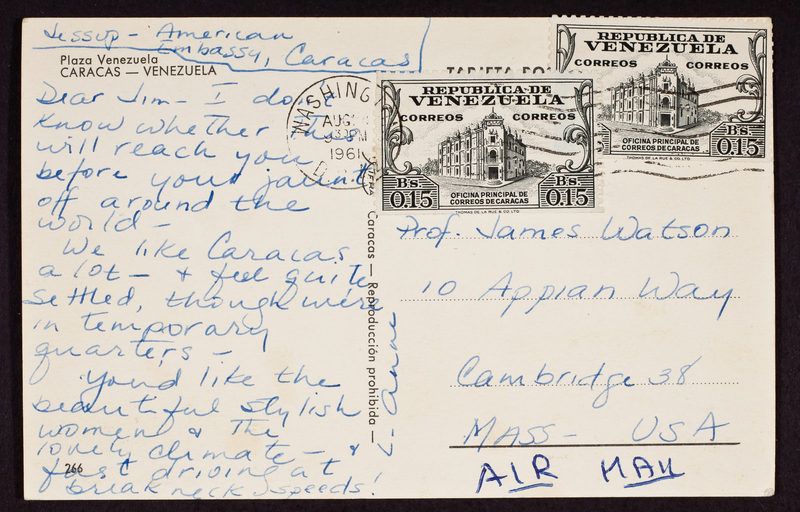 Jessup - American
Embassy, Caracas
Plaza Venezuela
CARACAS — VENEZUELA
Dear Jim - I don't
know whether this
will reach you
before your jaunt
off around the
world -
We like Caracas
a lot - & feel quite
settled, though we're
in temporary
quarters -
You'd like the
beautiful stylish
women & the
lovely climate - &
fast driving at
breakneck speeds!
L- Anne
266
Caracas — Reproducción prohibida —
WASHINGT
AUG
PM
1961
REPUBLICA DE
VENEZUELA
CORREOS CORREOS
OFICINA PRINCIPAL DE
CORREOS DE CARACAS
Bs. Bs.
0.15 0.15
THOMAS DE LA RUE & CO. LTD.
REPUBLICA DE
VENEZUELA
CORREOS CORREOS
OFICINA PRINCIPAL DE
CORREOS DE CARACAS
Bs.
0.15
THOMAS DE LA RUE & CO. LTD.
Prof. James Watson
10 Appian Way
Cambridge 38
MASS - USA
AIR MAIL